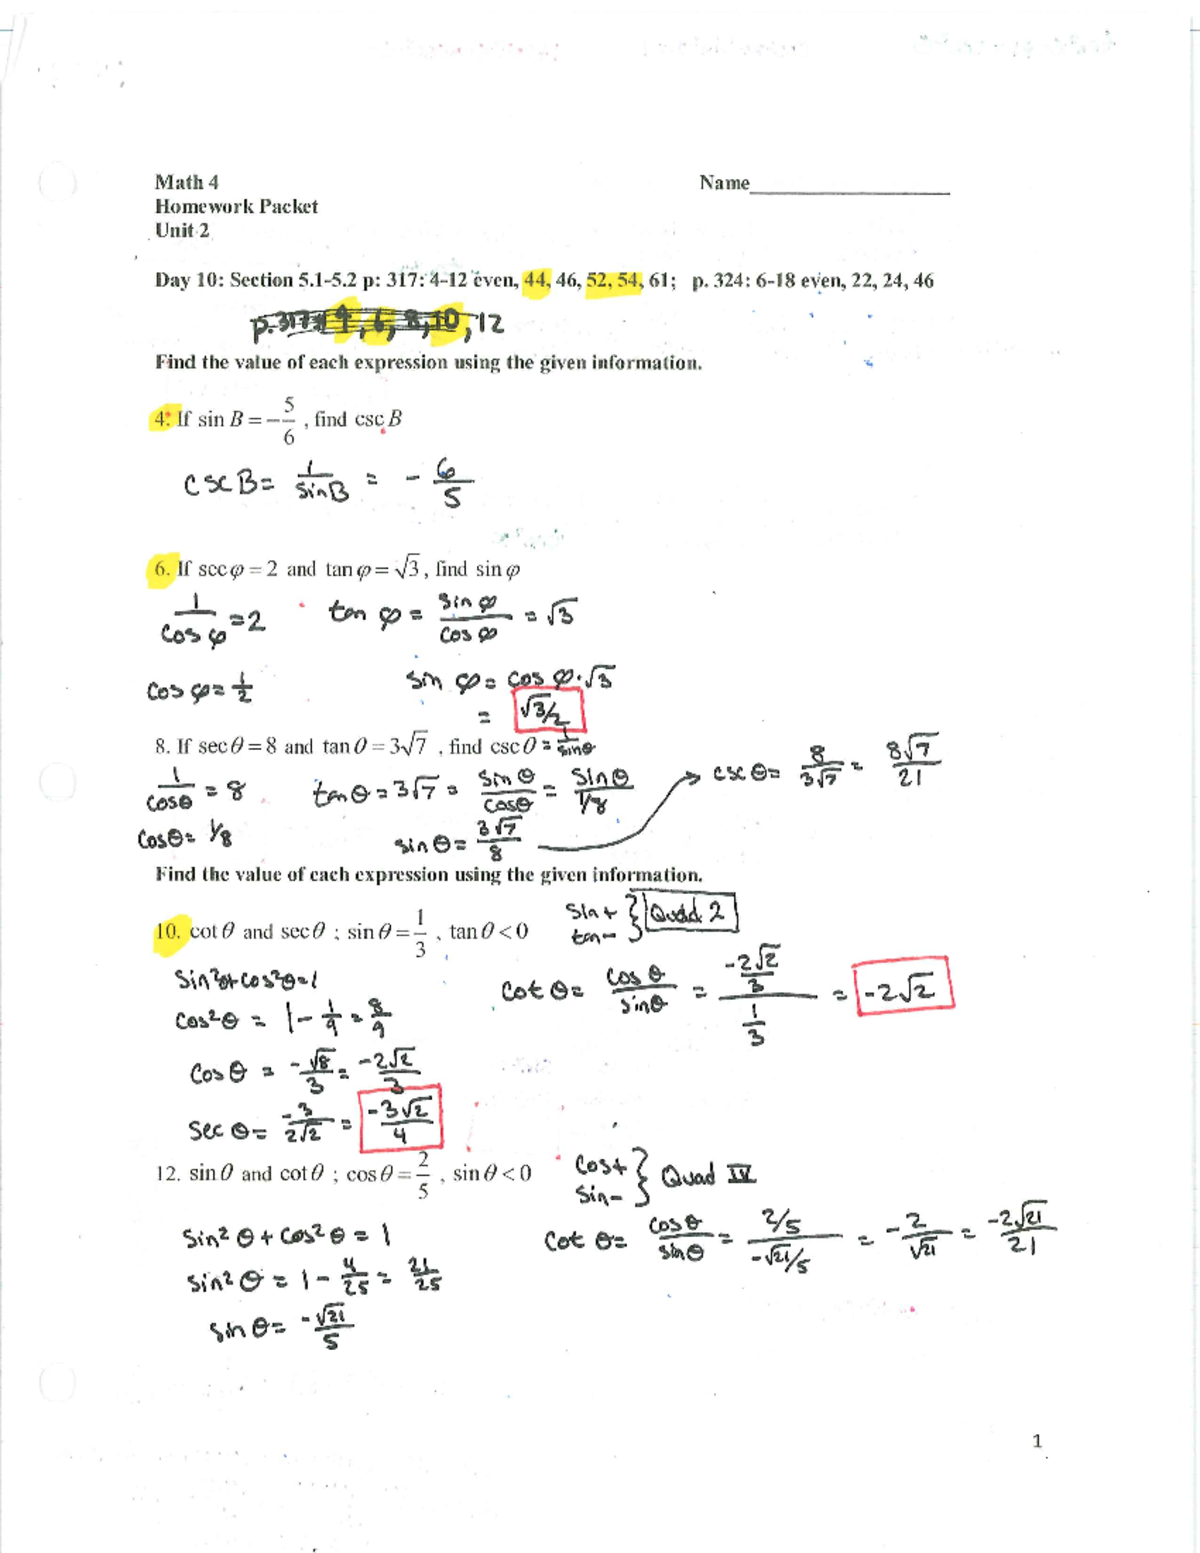 Math 4 Name
Homework Packet
Unit 2
Day 10: Section 5.1-5.2 p: 317: 4-12 even, 44, 46, 52, 54, 61; p. 324: 6-18 even, 22, 24, 46
p.317# 4, 6, 8, 10, 12
Find the value of each expression using the given information.
4. If sin B = -5/6 , find csc B
csc B = 1/sin B = -6/5
6. If sec φ = 2 and tan φ = √3, find sin φ
1/cos φ = 2 tan φ = sin φ/cos φ = √3
cos φ = 1/2 sin φ = cos φ · √3
= √3/2
8. If sec θ = 8 and tan θ = 3√7 , find csc θ = 1/sin θ
1/cos θ = 8 tan θ = 3√7 = sin θ/cos θ = sin θ/1/8 → csc θ = 8/3√7 = 8√7/21
cos θ = 1/8 sin θ = 3√7/8
Find the value of each expression using the given information.
10. cot θ and sec θ ; sin θ = 1/3 , tan θ < 0 sin + tan - } Quad 2
sin²θ + cos²θ = 1 cot θ = cos θ/sin θ = -2√2/3 / 1/3 = -2√2
cos²θ = 1 - 1/9 = 8/9
cos θ = -√8/3 = -2√2/3
sec θ = -3/2√2 = -3√2/4
12. sin θ and cot θ ; cos θ = 2/5 , sin θ < 0 cos + sin - } Quad IV
sin² θ + cos² θ = 1 cot θ = cos θ/sin θ = 2/5 / -√21/5 = -2/√21 = -2√21/21
sin² θ = 1 - 4/25 = 21/25
sin θ = -√21/5
1